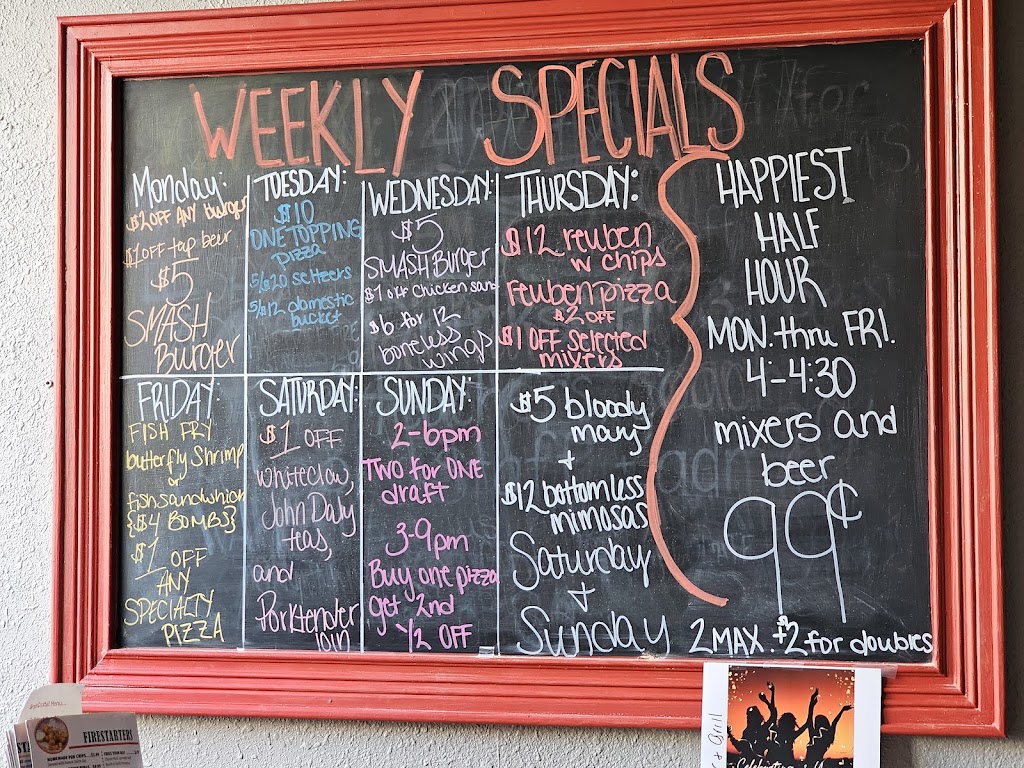 WEEKLY SPECIALS
Monday:
$2 OFF ANY burger
$1 off tap beer
$5
SMASH
Burger
TUESDAY:
$10
ONE TOPPING
pizza
5/$20 seltzers
5/$12 domestic
bucket
WEDNESDAY:
$5
SMASH Burger
$1 off chicken sand
$6 for 12
boneless
wings
THURSDAY:
$12 reuben
w chips
reuben pizza
$2 OFF
$1 OFF selected
mixers
FRIDAY:
FISH FRY
butterfly shrimp
or
fish sandwhich
{$4 BOMBS}
$1 OFF
ANY
SPECIALTY
PIZZA
SATURDAY:
$1 OFF
whiteclaw,
John Daly
teas,
and
Porktender
loin
SUNDAY:
2-6pm
TWO for ONE
draft
3-9pm
Buy one pizza
get 2nd
1/2 OFF
$5 bloody
mary
+
$12 bottomless
mimosas
Saturday
+
Sunday
HAPPIEST
HALF
HOUR
MON. thru FRI.
4-4:30
mixers and
beer
99¢
2 MAX. +$2 for doubles
FIRESTARTERS
+ Grill